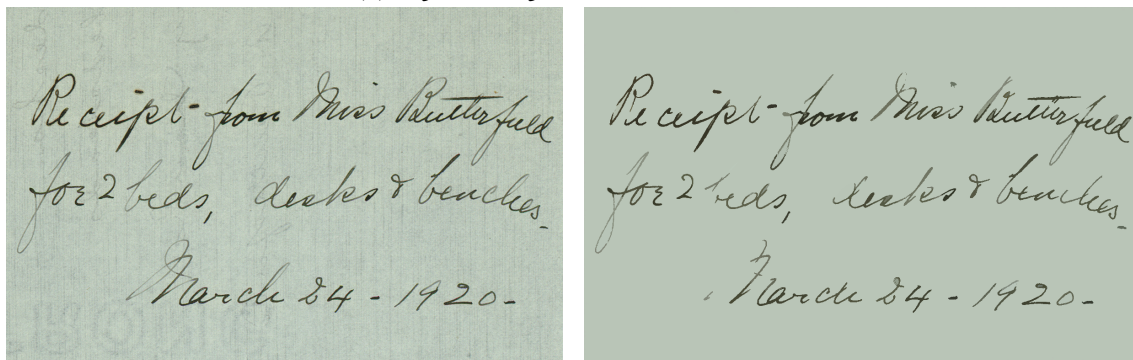 Receipt from Miss Butterfield
for 2 beds, desks & benches.
March 24 - 1920 -
Receipt from Miss Butterfield
for 2 beds, desks & benches.
March 24 - 1920 -